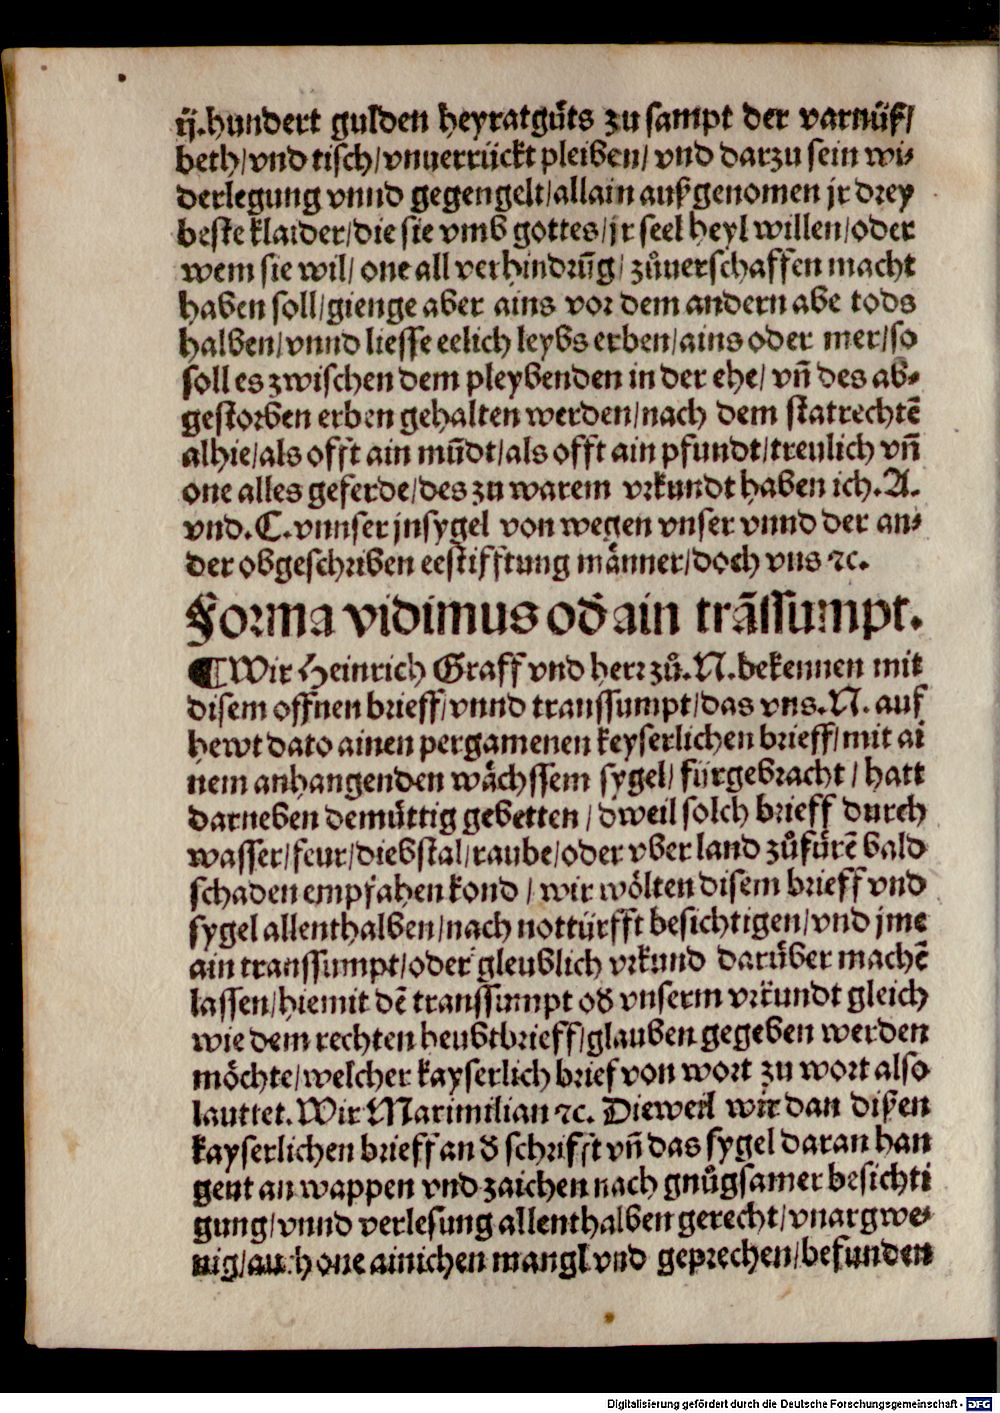 ij.hundert gulden heyratgůts zu sampt der varnüß/
beth/vnd tisch/vnuerrückt pleiben/ vnd darzu sein wi-
derlegung vnnd gegengelt/allain außgenomen jr drey
beste klaider/die sie vmb gottes/jr seel heyl willen/oder
wem sie wil/ one all verhindrūg/ zůuerschaffen macht
haben soll/gienge aber ains vor dem andern abe tods
halben/vnnd liesse eelich leybs erben/ains oder mer/so
soll es zwischen dem pleybenden in der ehe/ vñ des ab-
gestorben erben gehalten werden/nach dem statrechtē
alhie/als offt ain mūdt/als offt ain pfundt/treulich vñ
one alles geferde/des zu warem vrkundt haben ich.A.
vnd.C.vnnser jnsygel von wegen vnser vnnd der an-
der obgeschriben eestifftung männer/doch vns ꝛc.
Forma vidimus od̄ ain trāssumpt.
¶Wir Heinrich Graff vnd herr zů.N.bekennen mit
disem offnen brieff/vnnd transsumpt/das vns.N. auf
hewt dato ainen pergamenen keyserlichen brieff/mit ai
nem anhangenden wächssem sygel/ fürgebracht/ hatt
darneben demüttig gebetten/ dweil solch brieff durch
wasser/feur/diebstal/raube/oder vber land zůfürē bald
schaden empfahen kond/ wir wölten disem brieff vnd
sygel allenthalben/nach nottürfft besichtigen/vnd jme
ain transsumpt/oder gleublich vrkund darüber machē
lassen/hiemit dē transsumpt od̄ vnserm vrkundt gleich
wie dem rechten heubtbrieff/glauben gegeben werden
möchte/welcher kayserlich brief von wort zu wort also
lauttet.Wir Maximilian ꝛc. Dieweil wir dan dißen
kayserlichen brieff an d̄ schrifft vñ das sygel daran han
gent an wappen vnd zaichen nach gnůgsamer besichti
gung/vnnd verlesung allenthalben gerecht/vnargwe-
nig/auch one ainichen mangl vnd geprechen/befunden
Digitalisierung gefördert durch die Deutsche Forschungsgemeinschaft - DFG